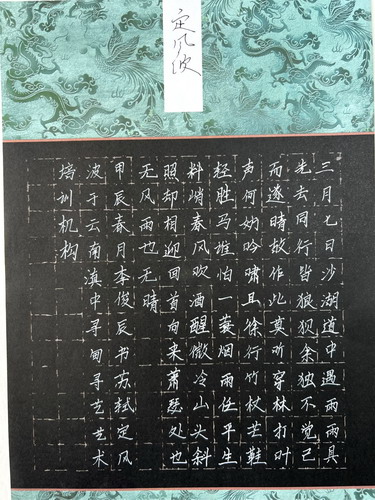 定风波
三月七日沙湖道中遇雨雨具
先去同行皆狼狈余独不觉已
而遂晴故作此莫听穿林打叶
声何妨吟啸且徐行竹杖芒鞋
轻胜马谁怕一蓑烟雨任平生
料峭春风吹酒醒微冷山头斜
照却相迎回首向来萧瑟处也
无风雨也无晴
甲辰春月李俊辰书苏轼定风
波于云南滇中寻甸寻艺艺术
培训机构